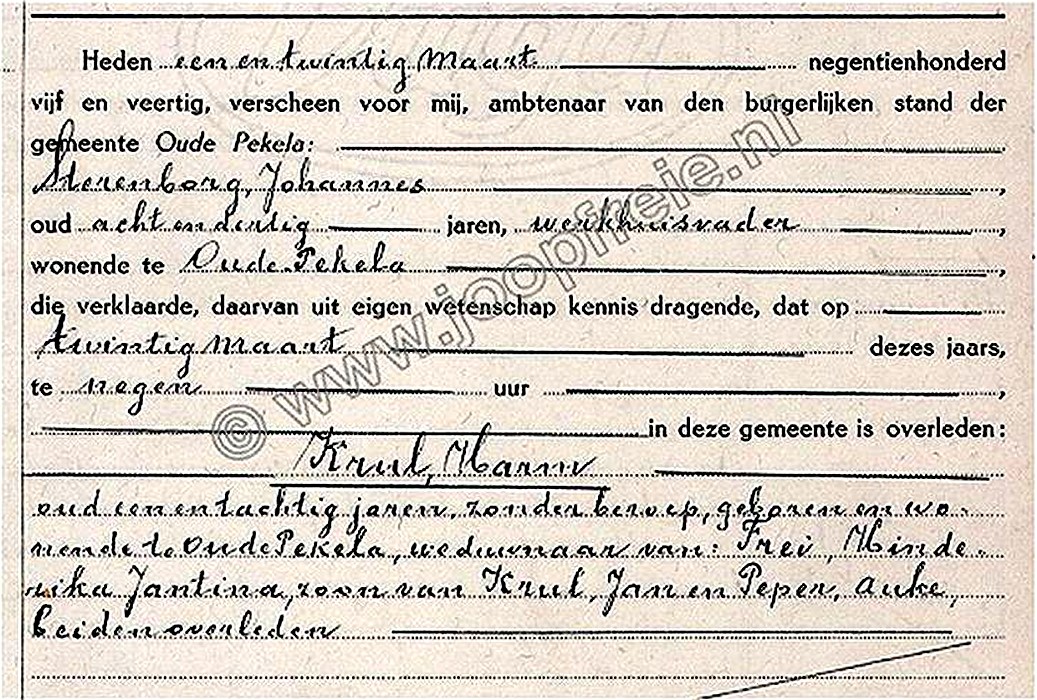 Heden een en twintig Maart negentienhonderd
vijf en veertig, verscheen voor mij, ambtenaar van den burgerlijken stand der
gemeente Oude Pekela:
Sterenborg, Johannes,
oud acht en dertig jaren, werkhuisvader,
wonende te Oude Pekela,
die verklaarde, daarvan uit eigen wetenschap kennis dragende, dat op
twintig Maart dezes jaars,
te negen uur,
in deze gemeente is overleden:
Krul, Harm
oud een en tachtig jaren, zonder beroep, geboren en wo-
nende te Oude Pekela, weduwnaar van: Frei, Hinde-
rika Jantina, zoon van Krul, Jan en Peper, Auke,
beiden overleden
© www.joopfreie.nl